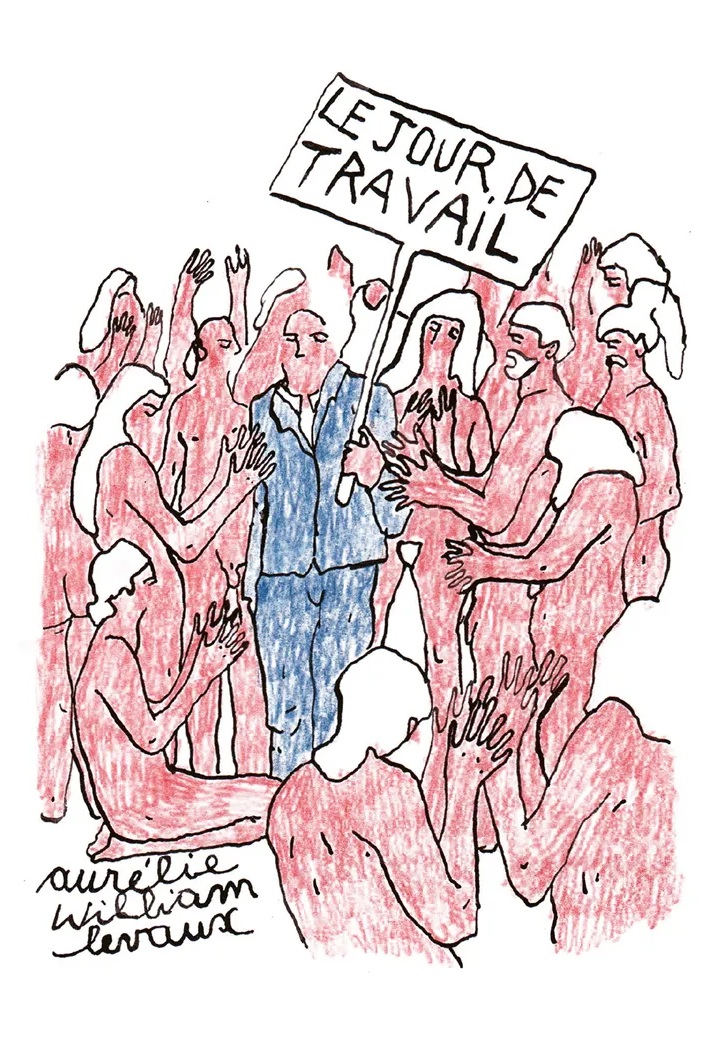 LE JOUR DE
TRAVAiL
aurélie
william
levaux